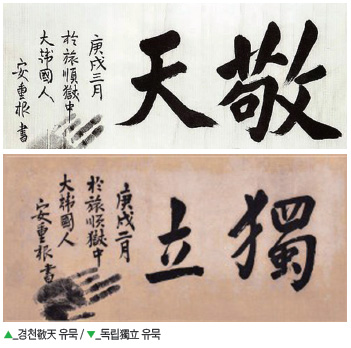 敬天
庚戌三月
於旅順獄中
大韓國人
安重根 書
獨立
庚戌二月
於旅順獄中
大韓國人
安重根 書
▲_경천敬天 유묵 / ▼_독립獨立 유묵